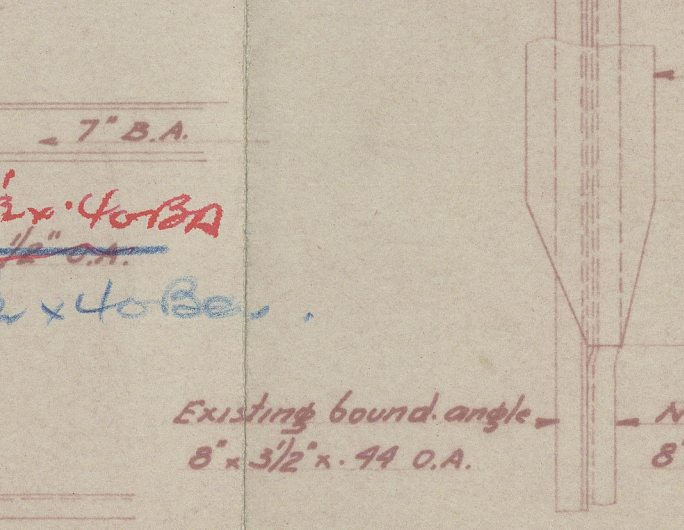 7" B.A.
1/2 x .40 BA
1/2" O.A.
x 40 BA
Existing bound. angle
8" x 3 1/2" x .44 O.A.
N
8"